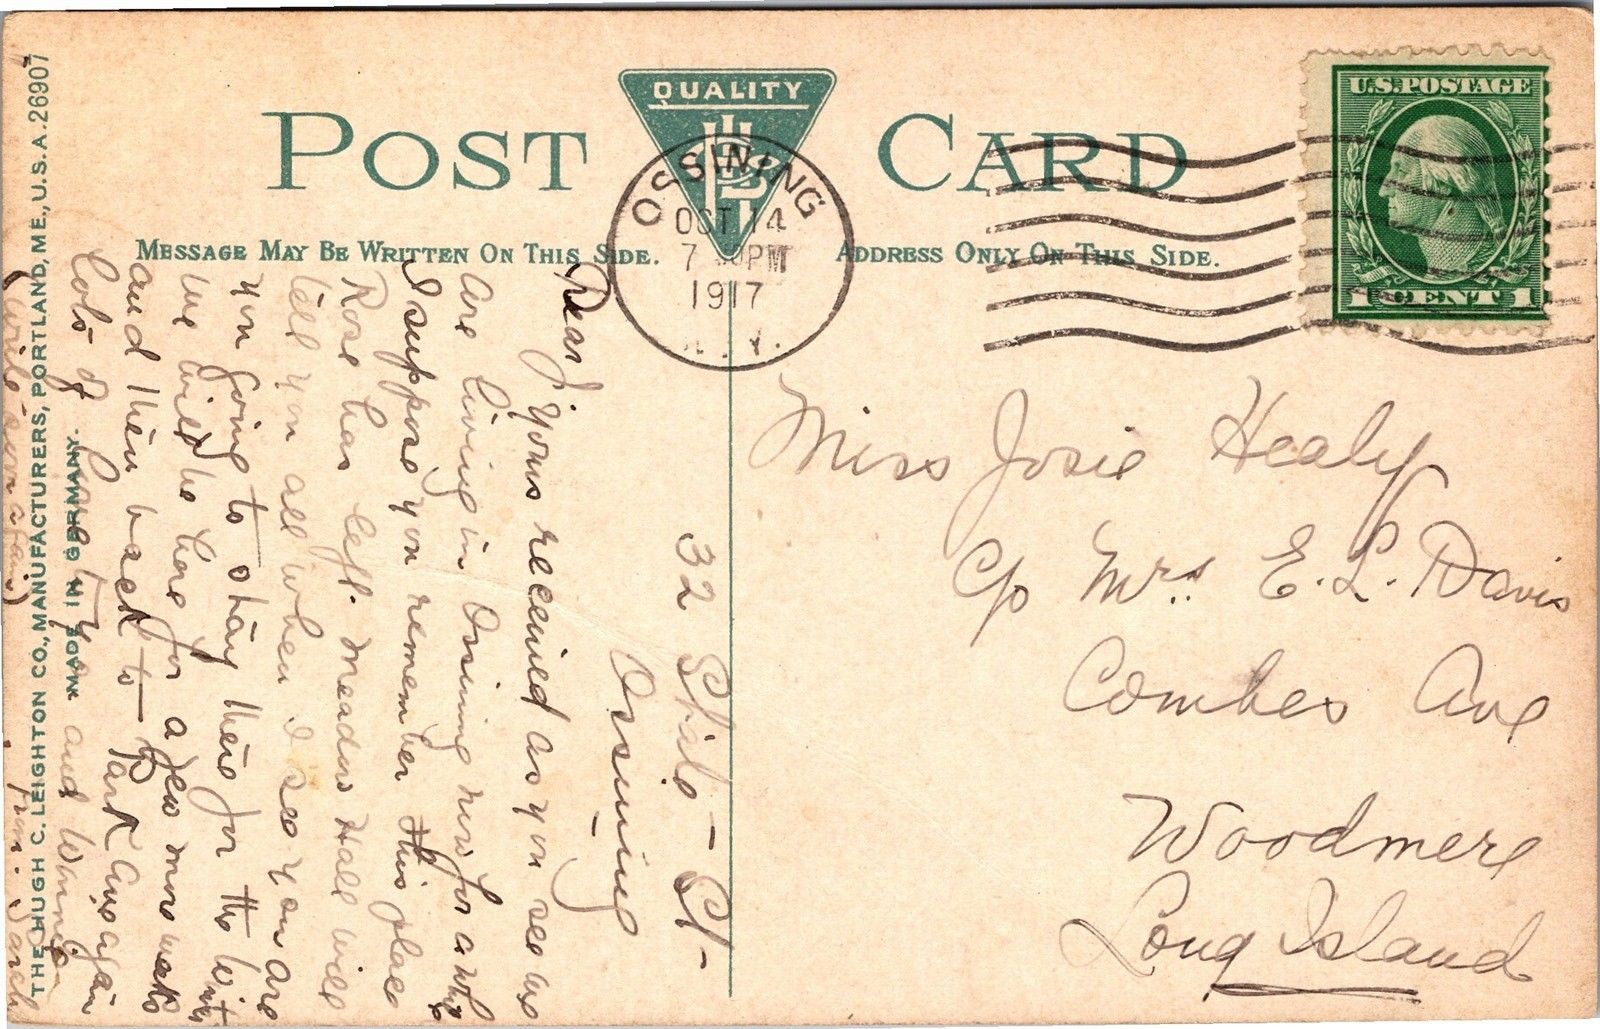 POST CARD
QUALITY
MESSAGE MAY BE WRITTEN ON THIS SIDE.
ADDRESS ONLY ON THIS SIDE.
OSSINING
OCT 14
7 PM
1917
N.Y.
U.S.POSTAGE
1 CENT 1
Miss Josie Healy
C/o Mrs. E. L. Davis
Combes Ave
Woodmere
Long Island
32 State - St -
Ossining
Dear J, yours received as you see we
are living in Ossining now for a while
I suppose you remember this place
Rose has left Meadow Hall will
tell you all when I see you are
you going to stay there for the winter
we will be here for a few more weeks
and then back to - Park Ave again
lots of love to you and Winnie
(write soon again)
from
THE HUGH C. LEIGHTON CO., MANUFACTURERS, PORTLAND, ME., U.S.A. 26907
MADE IN GERMANY.